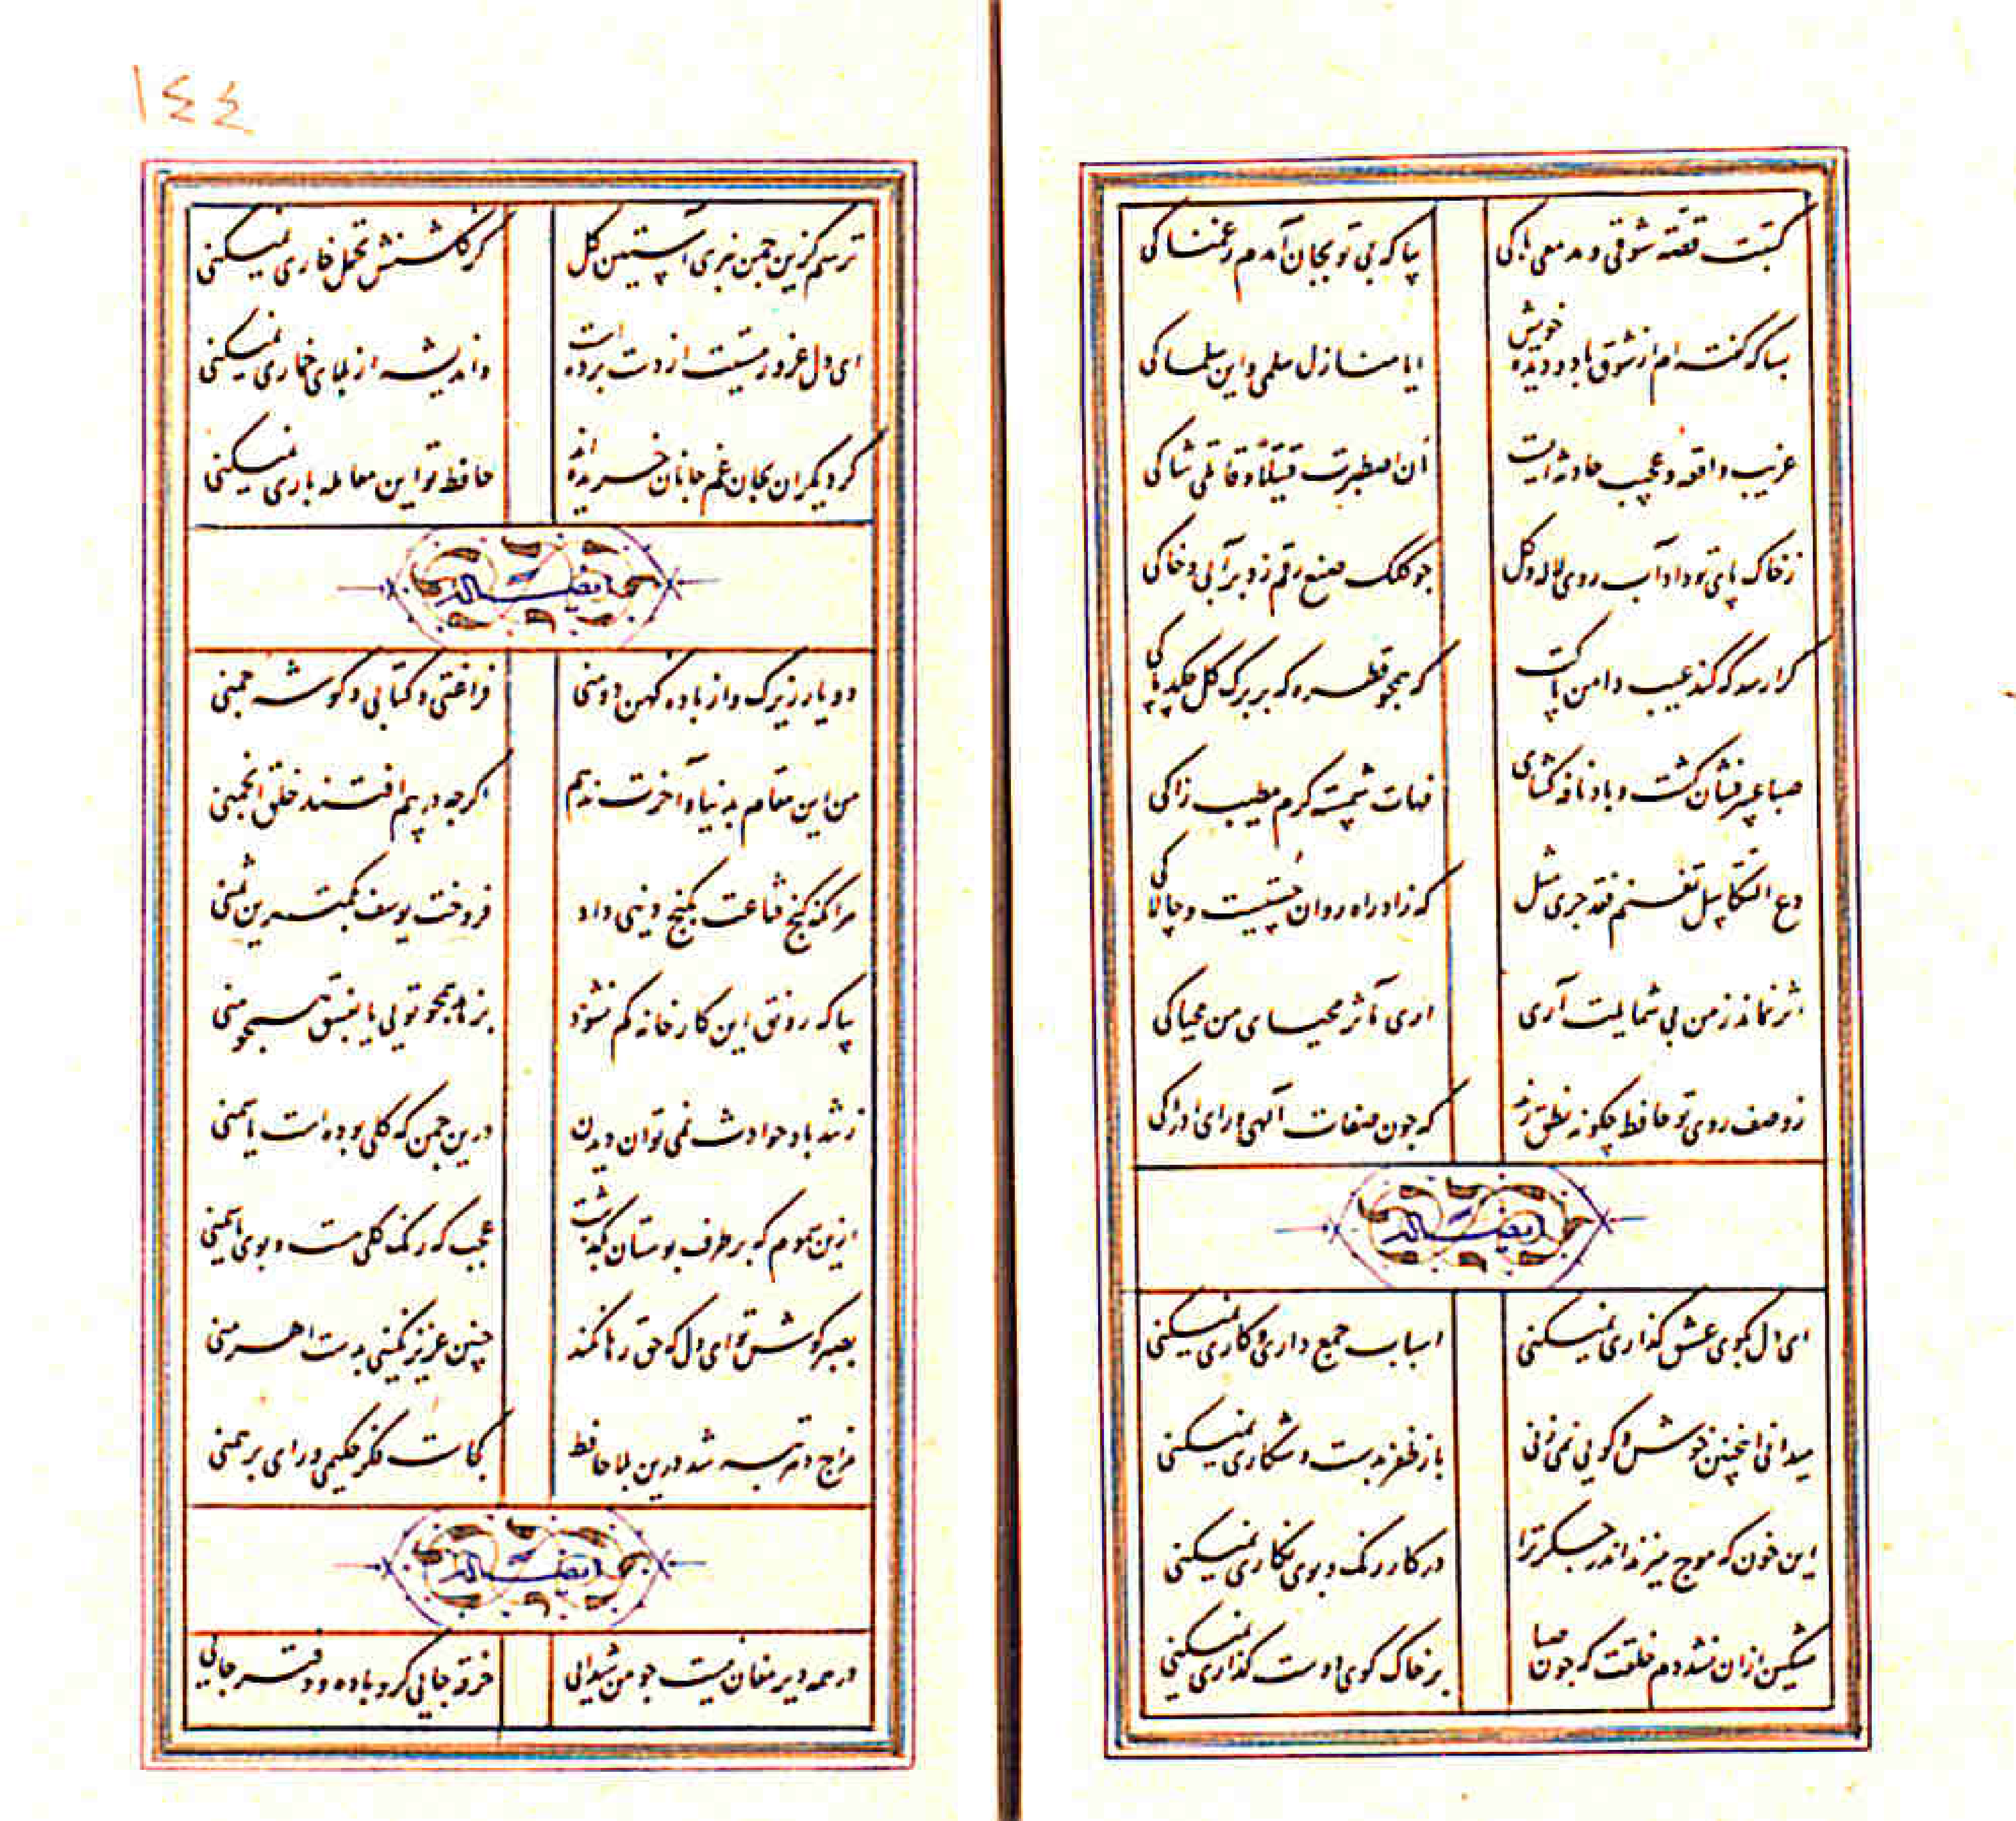 کتبت قصّة شوقی و مدمعی باکی
بیا که بی تو بجان آمدم ز غمناکی
بسا که گفته ام از شوق با دو دیده خویش
ایا منازل سلمی و این سلماکی
غریب واقعه و عجیب حادثه ایست
أن اصطبرت قتیلاً و قاتلی شاکی
ز خاک پای تو داد آب روی لاله و گل
جو کلک صنع رقم زد بر آبی و خاکی
کرا رسد که کند عیب دامن پاکت
که همجو قطره که بر برک کل چکد پاکی
صبا عبیر فشان کشت و باد نافه کشای
فهات شمسة کرم مطیب زاکی
دع التکاسل تغنم فقد جری مثل
که زاد راه روان چستیست و چالاکی
اثر نماند ز من بی شمایلت آری
اری مآثر محیای من محیاکی
ز وصف روی تو حافظ چکونه نطق زند
که جون صفات الهی ورای ادراکی
ایضاً له
ای دل بکوی عشق کذاری نمیکنی
اسباب جمع داری و کاری نمیکنی
میدانی اینچنین خوش و کویی نمی زنی
باز ظفر بدست و شکاری نمیکنی
این خون که موج میزند اندر جکر ترا
در کار رنک و بوی نکاری نمیکنی
مشکین از ان نشد دم خلقت که جون صبا
بر خاک کوی دوست کذاری نمیکنی
١٤٤
ترسم کزین جمن نبری آستین کل
کز کلشنش تحمل خاری نمیکنی
ای دل غرور مستیت از دست برده است
و اندیشه از بلای خماری نمیکنی
کر دیکران بجان غم جانان خریده اند
حافظ تو این معامله باری نمیکنی
ایضاً له
دو یار زیرک و از باده کهن دو منی
فراغتی و کتابی و کوشه جمنی
من این مقام بدنیا و آخرت ندهم
اکرجه در پیم افتند خلق انجمنی
هر انکه کنج قناعت بکنج دنیی داد
فروخت یوسف بکمترین ثمنی
بیا که رونق این کارخانه کم نشود
بزهد همجو تویی یا بفسق همجو منی
ز تند باد حوادث نمی توان دیدن
درین جمن که کلی بوده است یا سمنی
ازین سموم که بر طرف بوستان بکذشت
عجب که رنک کلی هست و بوی یاسمینی
بصبر کوش تو ای دل که حق رها نکند
چنین عزیز نکینی بدست اهرمنی
مزاج دهر تبه شد درین بلا حافظ
کجاست فکر حکیمی و رای برهمنی
ایضاً له
در همه دیر مغان نیست جو من شیدایی
خرقه جایی کرو باده و دفتر جایی